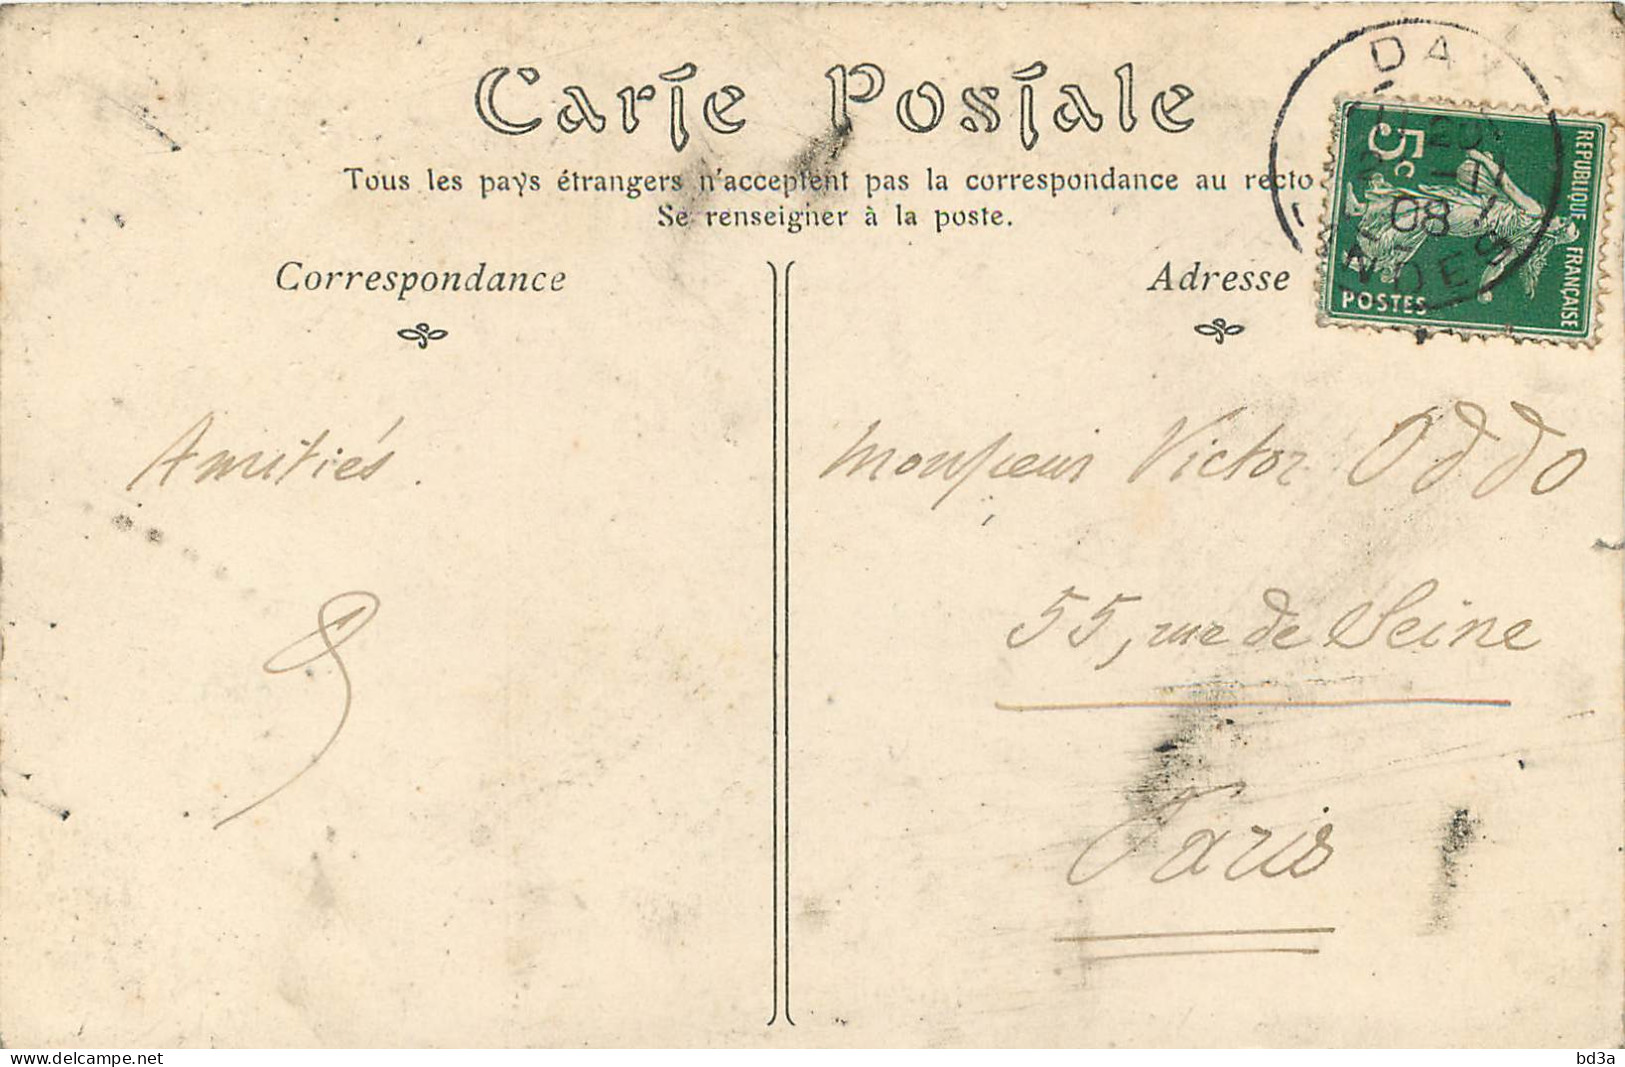 Carte Postale
Tous les pays étrangers n'acceptent pas la correspondance au recto
Se renseigner à la poste.
Correspondance
Adresse
DAX
08
NDES
5c
REPUBLIQUE FRANÇAISE
POSTES
Amitiés.
Monsieur Victor Oddo
55, rue de Seine
Paris
delcampe.net
bd3a